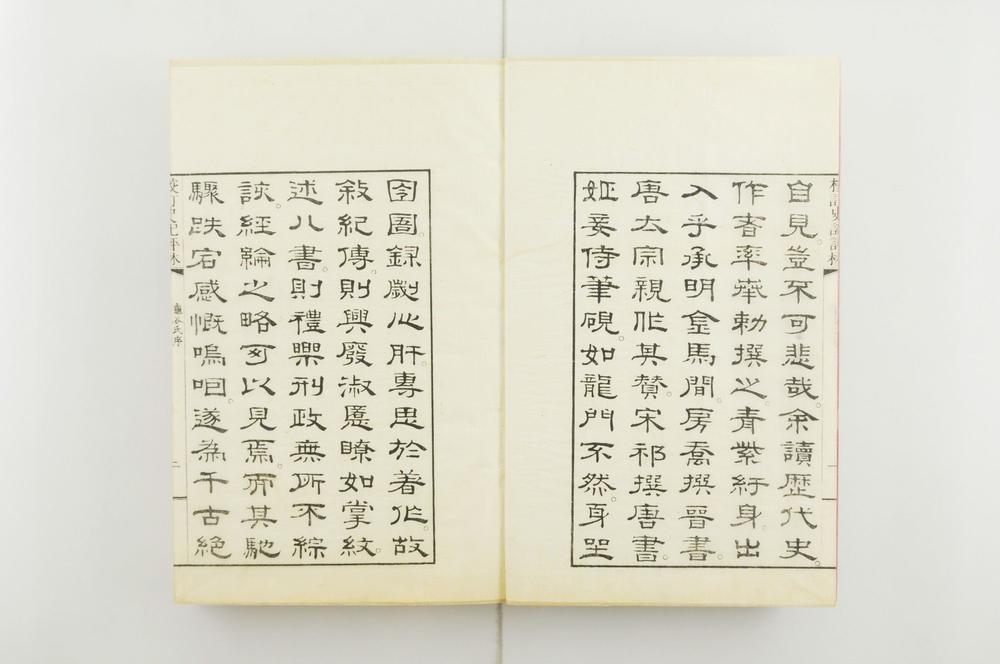 校訂史記評林
自見。豈不可悲哉。余讀歷代史。
作者率奉勅撰之。青紫紆身。出
入乎承明金馬間。房喬撰晉書。
唐太宗親作其贊。宋祁撰唐書。
姬妾侍筆硯。如龍門不然。身坐
囹圄。錄劌心肝。專思於著作。故
敘紀傳。則興廢淑慝瞭如掌紋。
述八書。則禮樂刑政無所不綜
該。經綸之略可以見焉。而其馳
驟跌宕感慨嗚咽。遂為千古絕
校訂史記評林 龜谷氏序 二